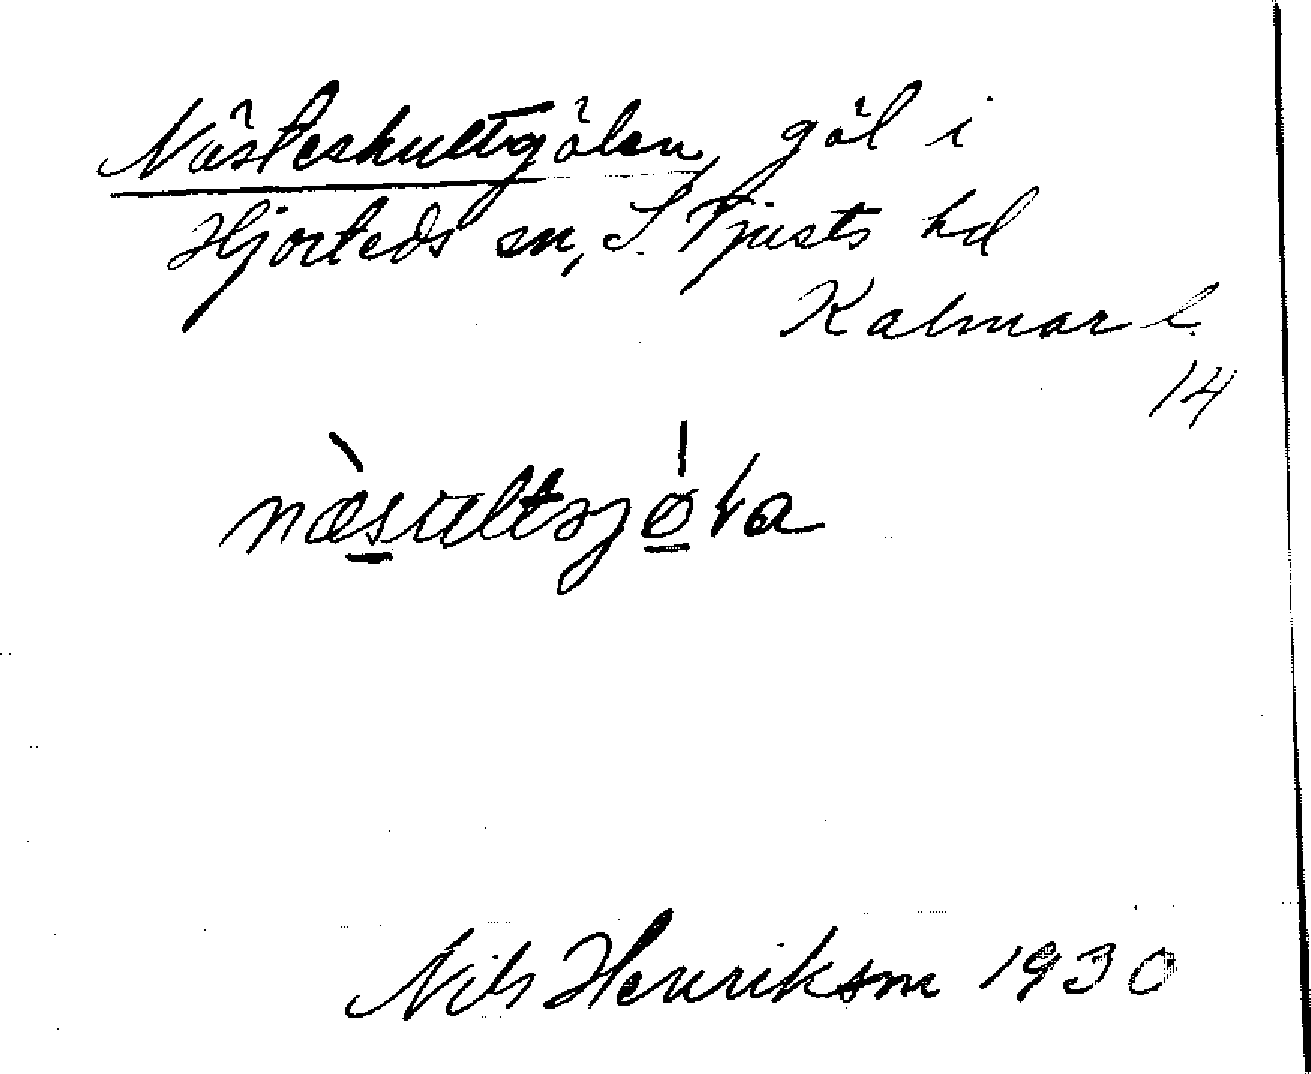 Nästeshultsgölen, göl i
Hjorteds sn, S. Tjusts hd
Kalmar l.
14
Nils Henriksson 1930